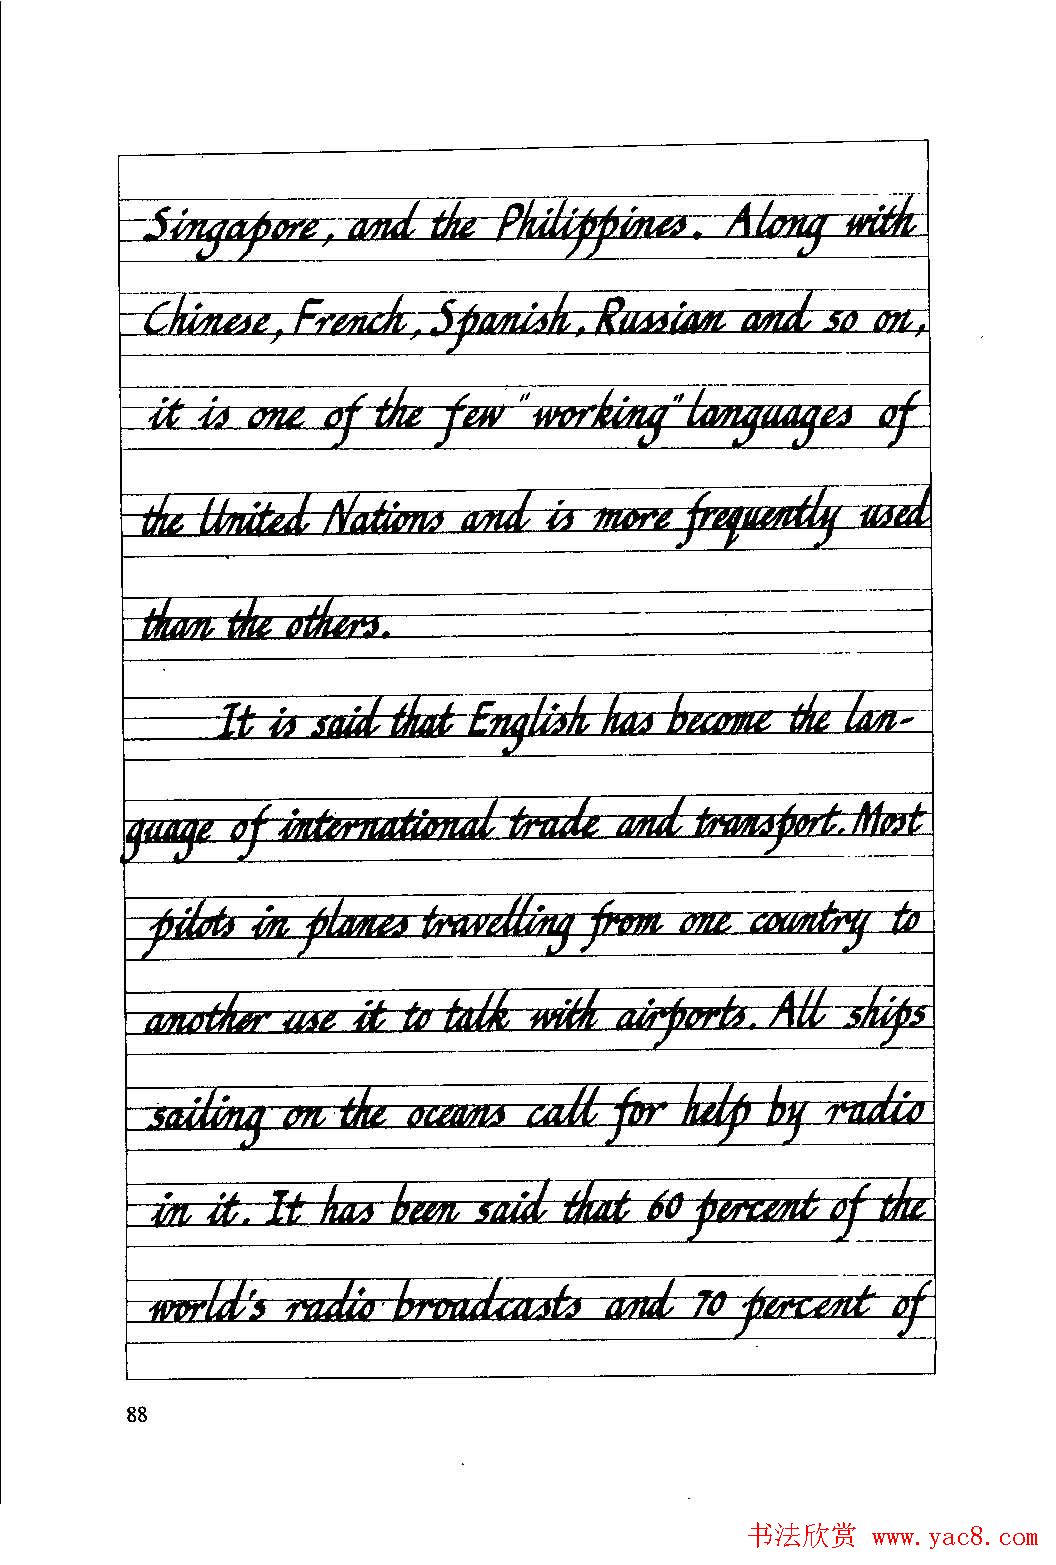 Singapore, and the Philippines. Along with
Chinese, French, Spanish, Russian and so on,
it is one of the few "working" languages of
the United Nations and is more frequently used
than the others.
It is said that English has become the lan-
guage of international trade and transport. Most
pilots in planes travelling from one country to
another use it to talk with airports. All ships
sailing on the oceans call for help by radio
in it. It has been said that 60 percent of the
world's radio broadcasts and 70 percent of
88
书法欣赏 www.yac8.com